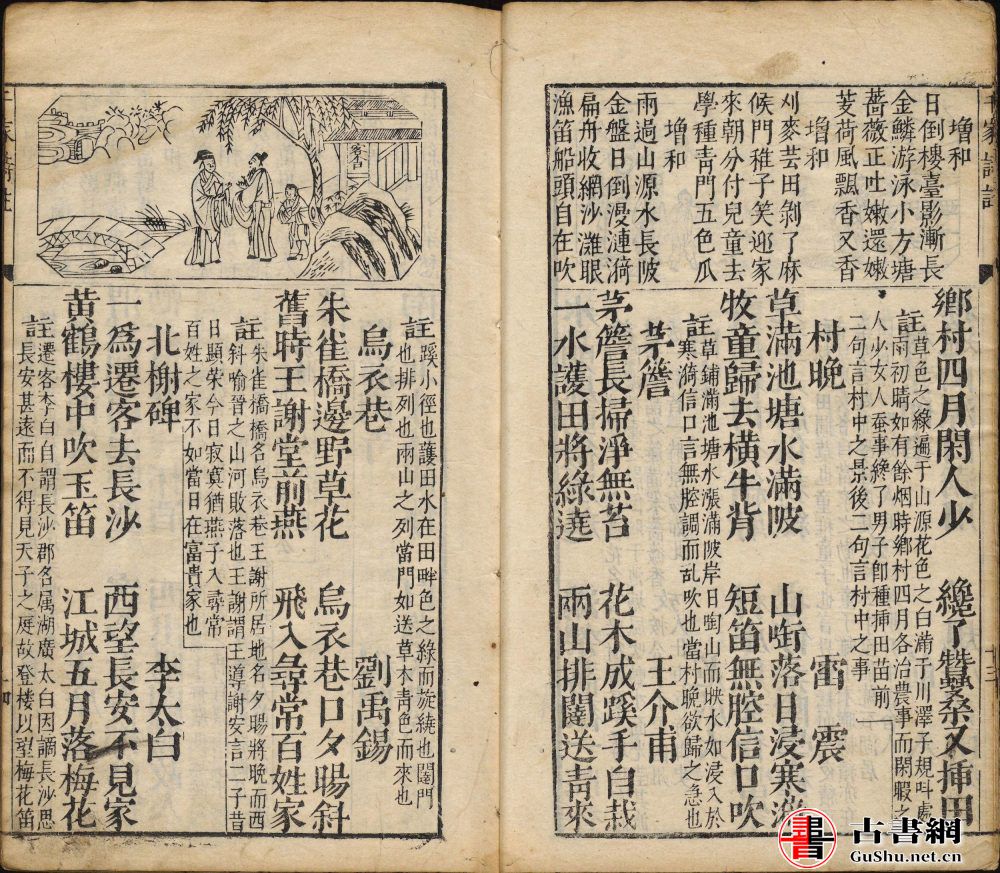 增和
日倒樓臺影漸長
金鱗游泳小方塘
薔薇正吐嫩還嫩
芰荷風飄香又香
增和
刈麥芸田剝了麻
候門稚子笑迎家
來朝分付兒童去
學種靑門五色瓜
增和
雨過山源水長陂
金盤日倒漫漣漪
扁舟收網沙灘眼
漁笛船頭自在吹
鄉村四月閑人少 纔了蠶桑又挿田
註草色之綠遍于山源花色之白滿于川澤子規呌處
雨初晴如有餘烟時鄉村四月各治農事而閑暇之
人少女人蚕事終了男子卽種挿田苗前
二句言村中之景後二句言村中之事
村晚 雷震
草滿池塘水滿陂 山啣落日浸寒漪
牧童歸去橫牛背 短笛無腔信口吹
註草鋪滿池塘水漲滿陂岸日啣山而映水如浸入於
寒漪信口言無腔調而亂吹也當村晚欲歸之急也
茅簷 王介甫
茅簷長掃淨無苔 花木成蹊手自栽
一水護田將綠遶 兩山排闥送靑來
註蹊小徑也護田水在田畔色之綠而旋繞也闥門
也排列也兩山之列當門如送草木靑色而來也
烏衣巷 劉禹錫
朱雀橋邊野草花 烏衣巷口夕暘斜
舊時王謝堂前燕 飛入尋常百姓家
註朱雀橋橋名烏衣巷王謝所居地名夕暘將晩而西
斜喻晉之山河敗落也王謝謂王導謝安言二子昔
日顯榮今日寂寞猶燕子入尋常
百姓之家不如當日在富貴家也
北榭碑 李太白
一爲遷客去長沙 西望長安不見家
黃鶴樓中吹玉笛 江城五月落梅花
註遷客李白自謂長沙郡名属湖廣太白因謫長沙思
長安甚遠而不得見天子之庭故登楼以望梅花笛
千家詩註
十三
古書網
GuShu.net.cn